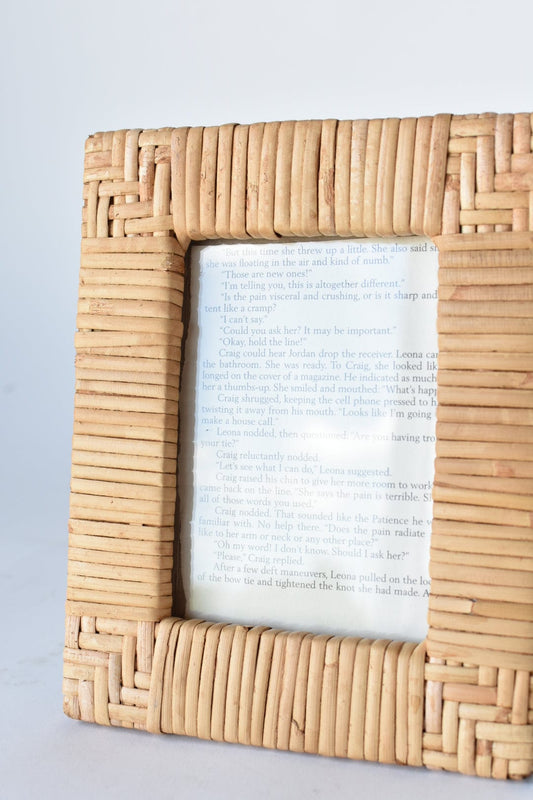 "But this time she threw up a little. She also said s
she was floating in the air and kind of numb."
"Those are new ones!"
"I'm telling you, this is altogether different."
"Is the pain visceral and crushing, or is it sharp and
tent like a cramp?
"I can't say."
"Could you ask her? It may be important."
"Okay, hold the line!"
Craig could hear Jordan drop the receiver. Leona car
the bathroom. She was ready. To Craig, she looked lik
longed on the cover of a magazine. He indicated as much
her a thumbs-up. She smiled and mouthed: "What's happ
Craig shrugged, keeping the cell phone pressed to h
twisting it away from his mouth. "Looks like I'm going
make a house call."
Leona nodded, then questioned. "Are you having tro
your tie?"
Craig reluctantly nodded.
"Let's see what I can do," Leona suggested.
Craig raised his chin to give her more room to work
came back on the line. "She says the pain is terrible. Sh
all of those words you used."
Craig nodded. That sounded like the Patience he w
familiar with. No help there. "Does the pain radiate
like to her arm or neck or any other place?"
"Oh my word! I don't know. Should I ask her?"
"Please," Craig replied.
After a few deft maneuvers, Leona pulled on the loo
of the bow tie and tightened the knot she had made. A